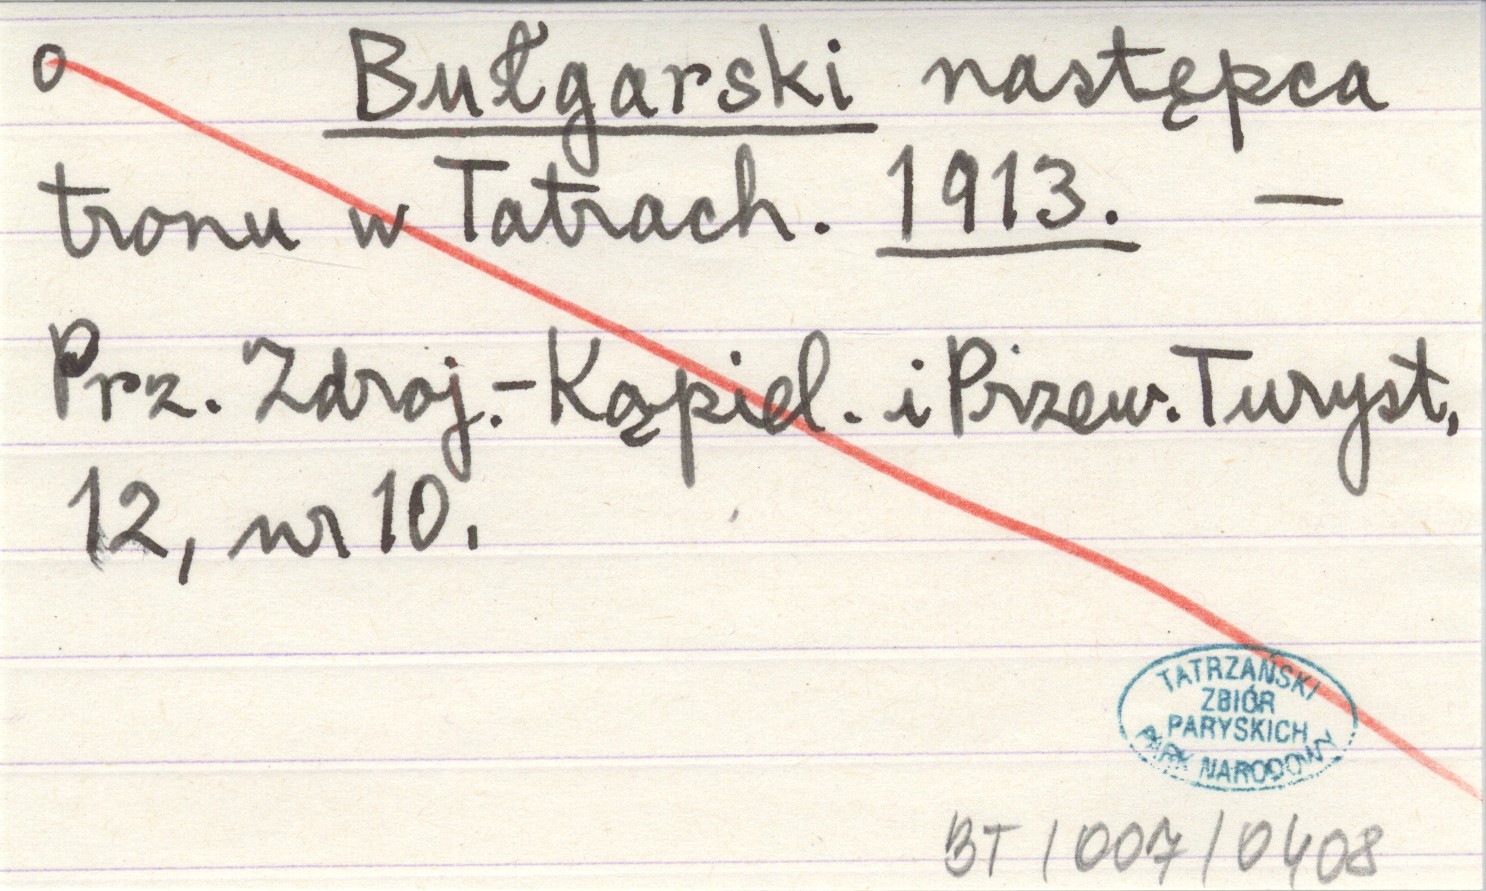 o Bułgarski następca
tronu w Tatrach. 1913. —
Prz. Zdroj.-Kąpiel. i Przew. Turyst,
12, nr 10.
TATRZAŃSKI
ZBIÓR
PARYSKICH
PARK NARODOWY
BT/007/0408